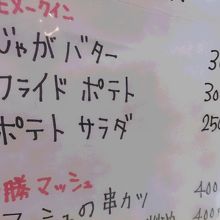 メークイン
じゃがバター 30
フライド ポテト 30
ポテト サラダ 250
勝マッシュ
の串カツ 400
400